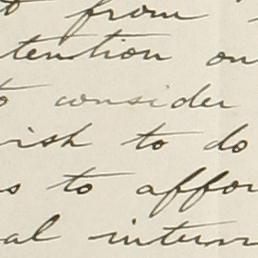 from
tention on
to consider
ish to do
s to affor
al intern